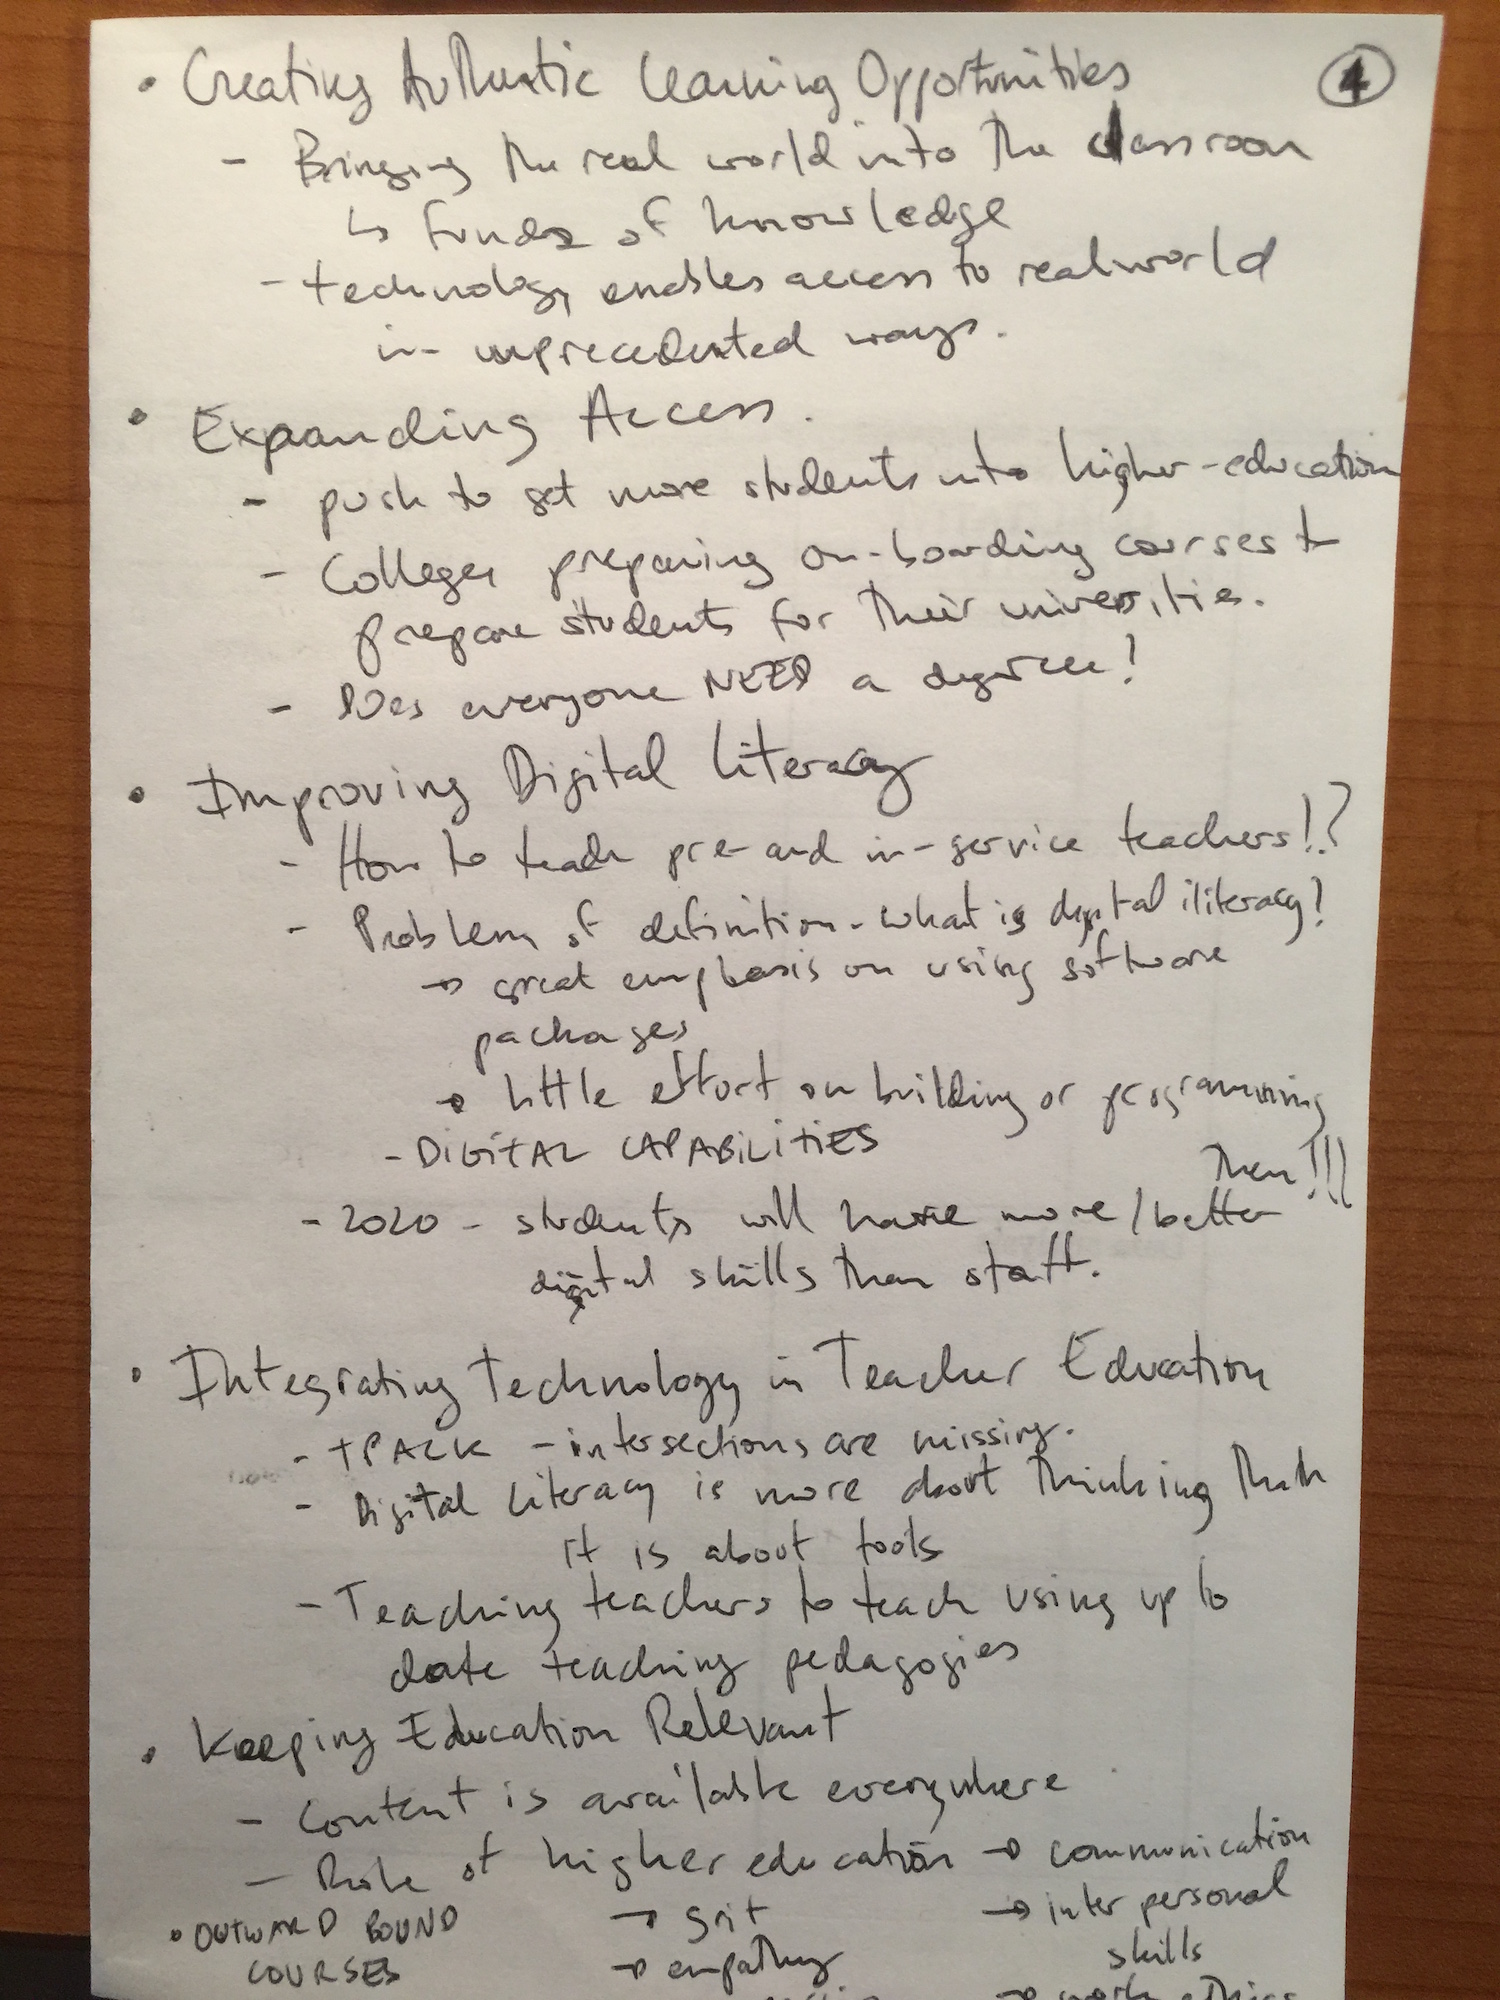 ④
• Creating Authentic Learning Opportunities
- Bringing the real world into the classroom
↳ funds of knowledge
- technology enables access to real world
in- unprecedented ways.
• Expanding Access.
- push to get more students into higher-education
- Colleges preparing on-boarding courses to
prepare students for their universities.
- Does everyone NEED a degree?
• Improving Digital Literacy
- How to teach pre- and in-service teachers!?
- Problem of definition - what is digital iliteracy?
→ great emphasis on using software
packages
→ little effort on building or programming
them!!!
- DIGITAL CAPABILITIES
- 2020 - students will have more/better
digital skills than staff.
• Integrating Technology in Teacher Education
- TPACK - intersections are missing.
- Digital Literacy is more about thinking than
it is about tools
- Teaching teachers to teach using up to
date teaching pedagogies
• Keeping Education Relevant
- Content is available everywhere
- Role of higher education → communication
• OUTWARD BOUND → grit → inter personal
COURSES → empathy skills
→ work ethics